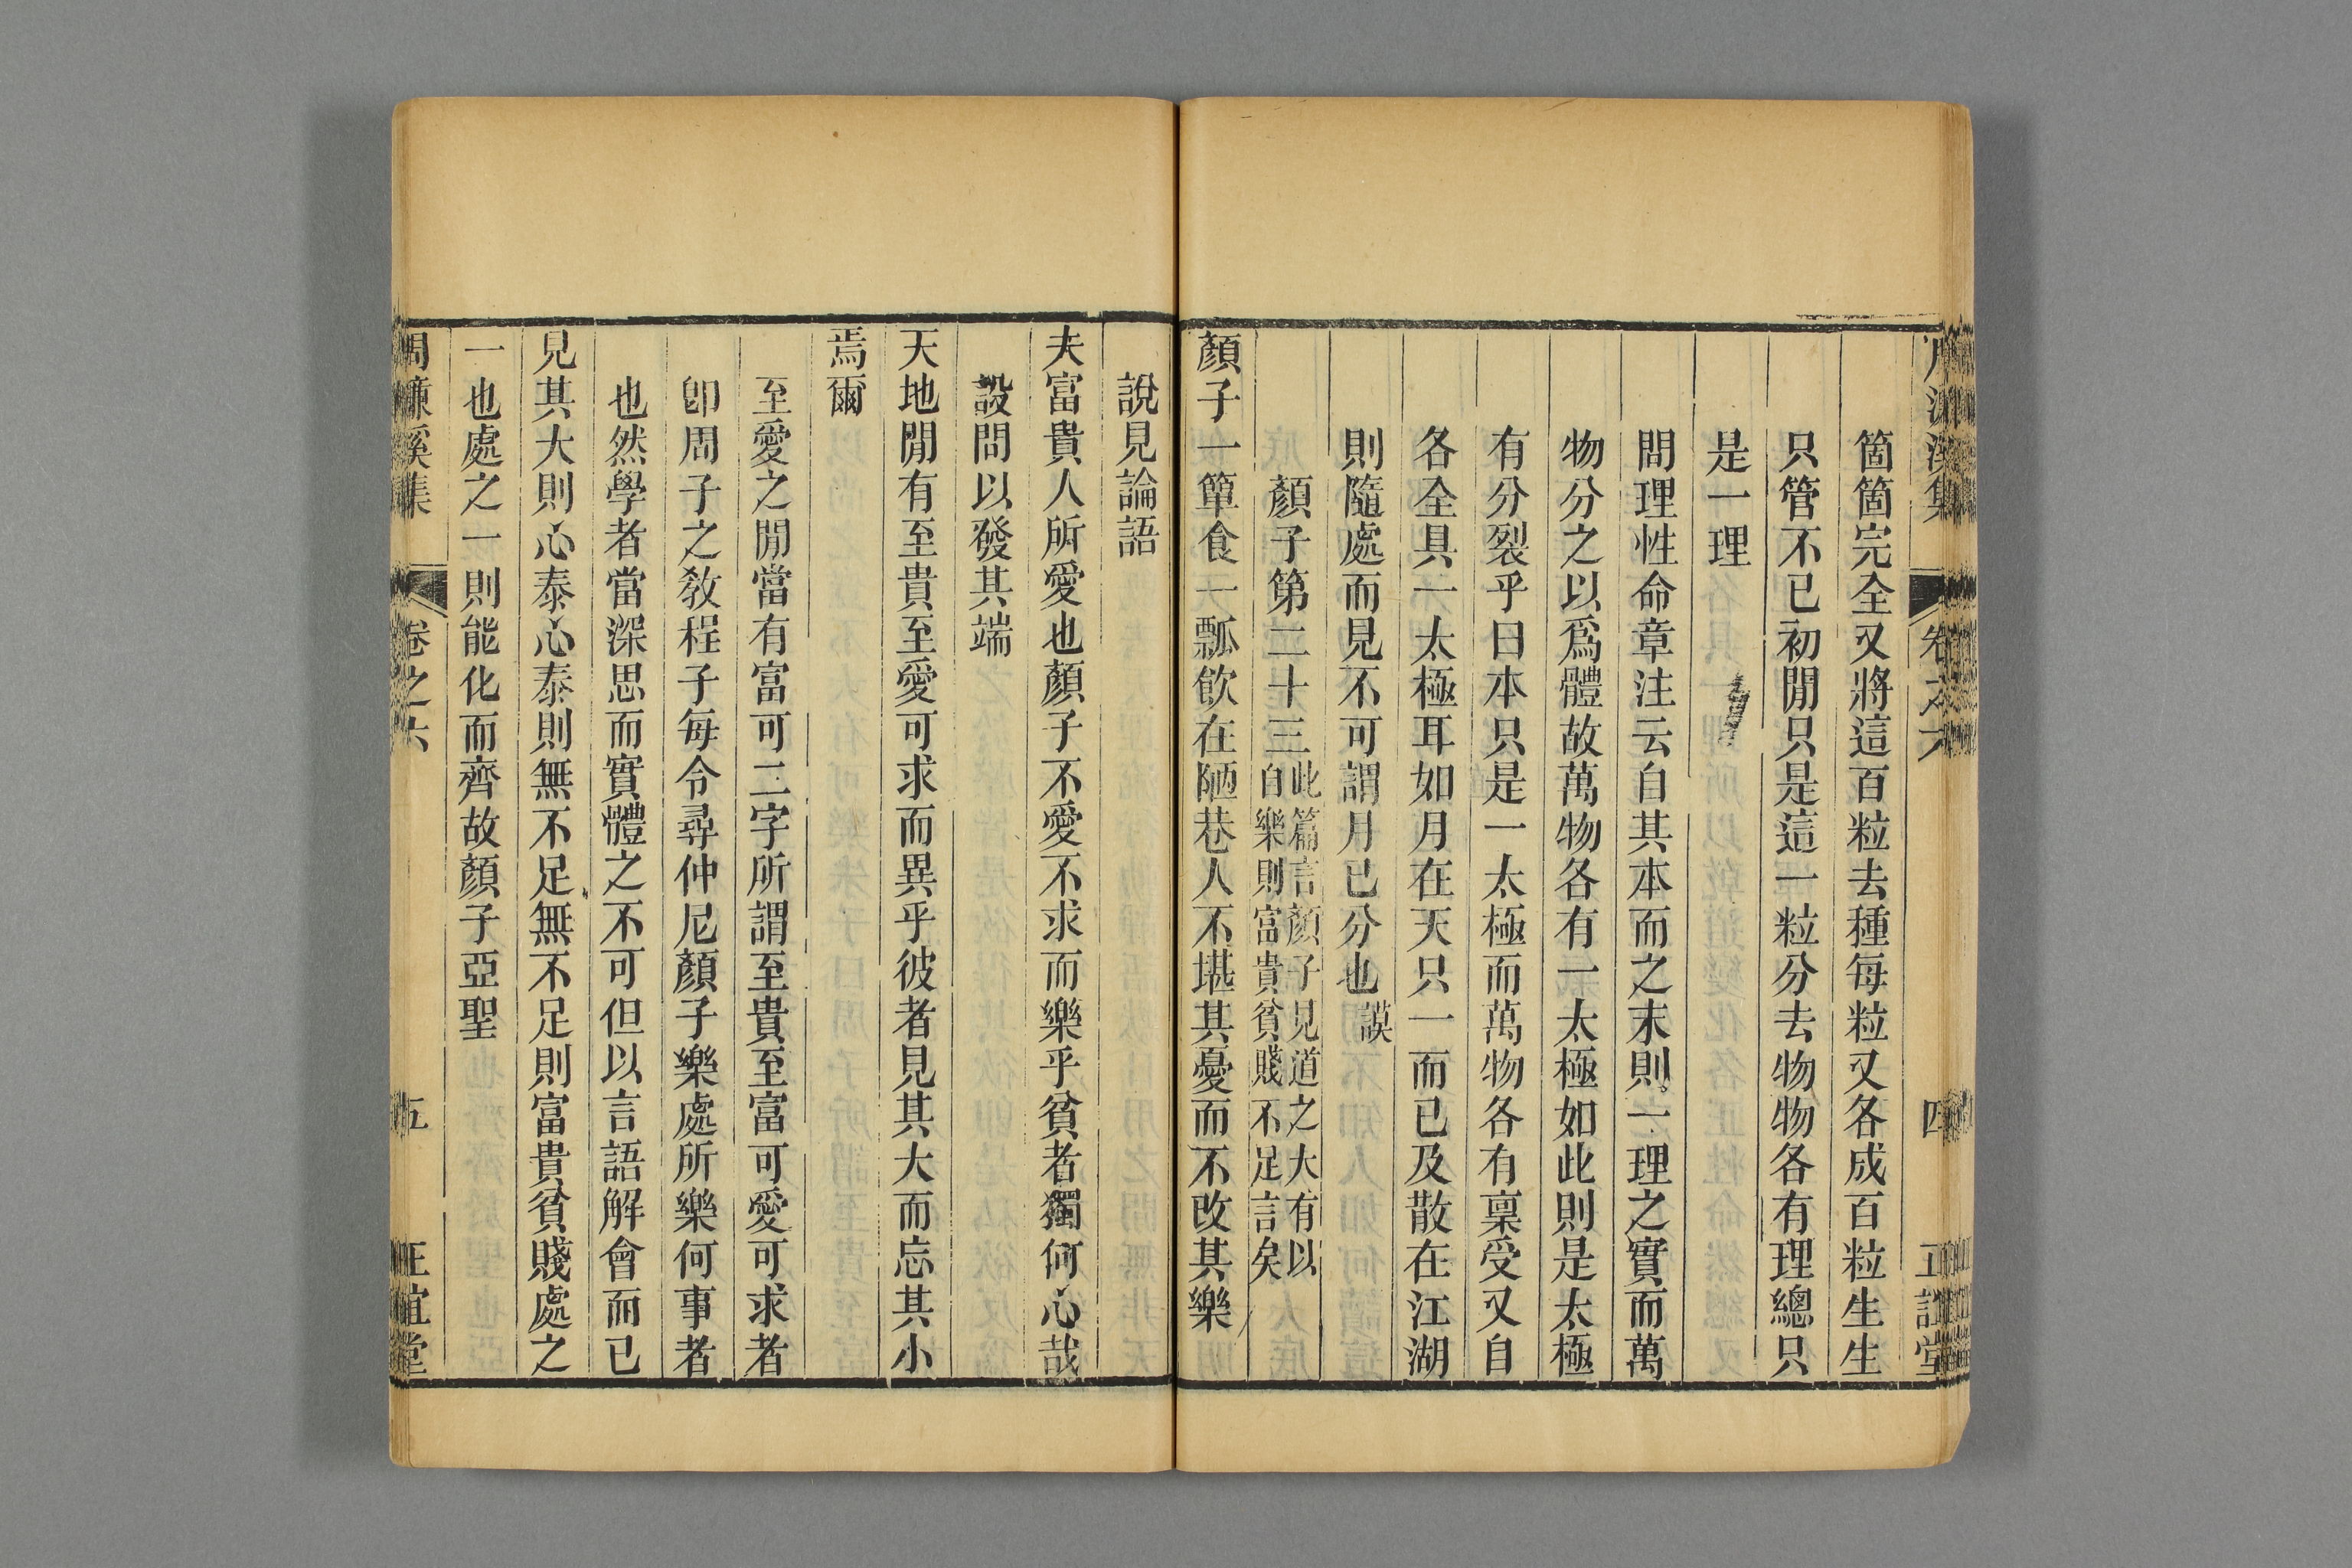 周濂溪集 卷之六 四 正誼堂
箇箇完全又將這百粒去種每粒又各成百粒生生
只管不已初閒只是這一粒分去物物各有理總只
是一理
問理性命章注云自其本而之末則一理之實而萬
物分之以爲體故萬物各有一太極如此則是太極
有分裂乎曰本只是一太極而萬物各有稟受又自
各全具一太極耳如月在天只一而已及散在江湖
則隨處而見不可謂月已分也 謨
顏子第二十三 此篇言顏子見道之大有以
自樂則富貴貧賤不足言矣
顏子一簞食一瓢飲在陋巷人不堪其憂而不改其樂
說見論語
夫富貴人所愛也顏子不愛不求而樂乎貧者獨何心哉
設問以發其端
天地閒有至貴至愛可求而異乎彼者見其大而忘其小
焉爾
至愛之閒當有富可二字所謂至貴至富可愛可求者
卽周子之敎程子每令尋仲尼顏子樂處所樂何事者
也然學者當深思而實體之不可但以言語解會而已
見其大則心泰心泰則無不足無不足則富貴貧賤處之
一也處之一則能化而齊故顏子亞聖
周濂溪集 卷之六 五 正誼堂